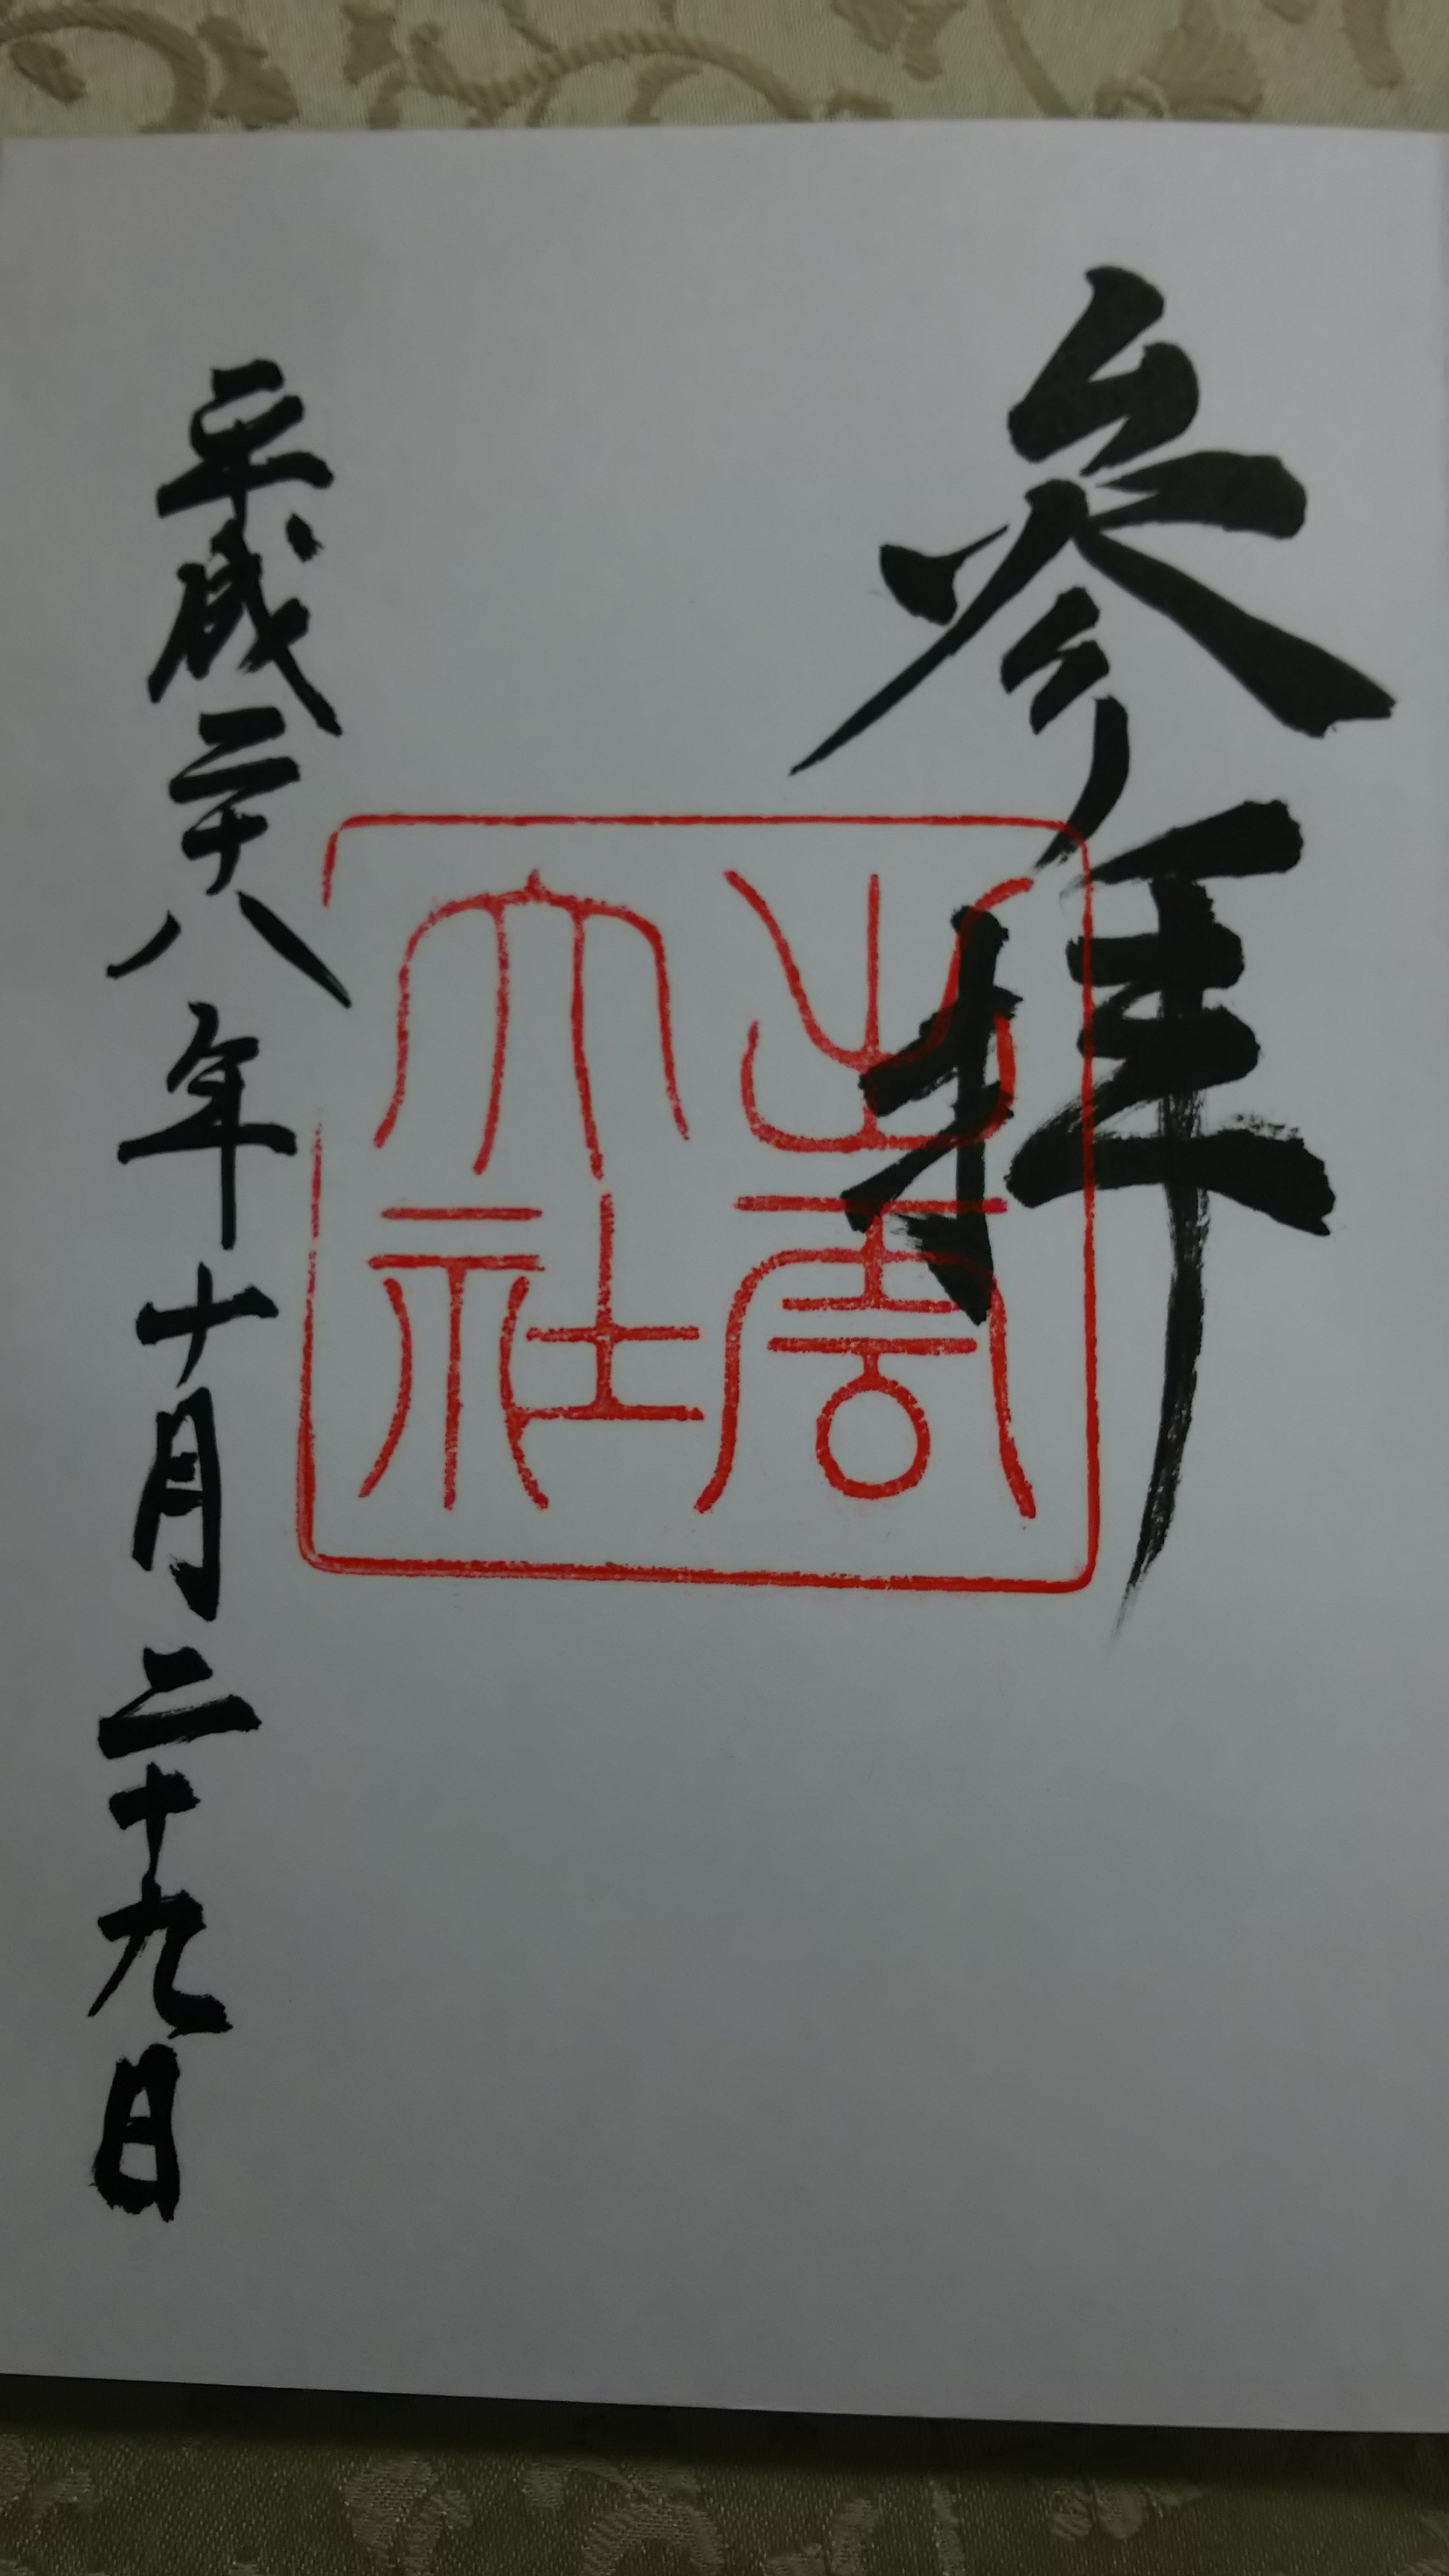 参拝
出雲大社
平成二十八年十月二十九日